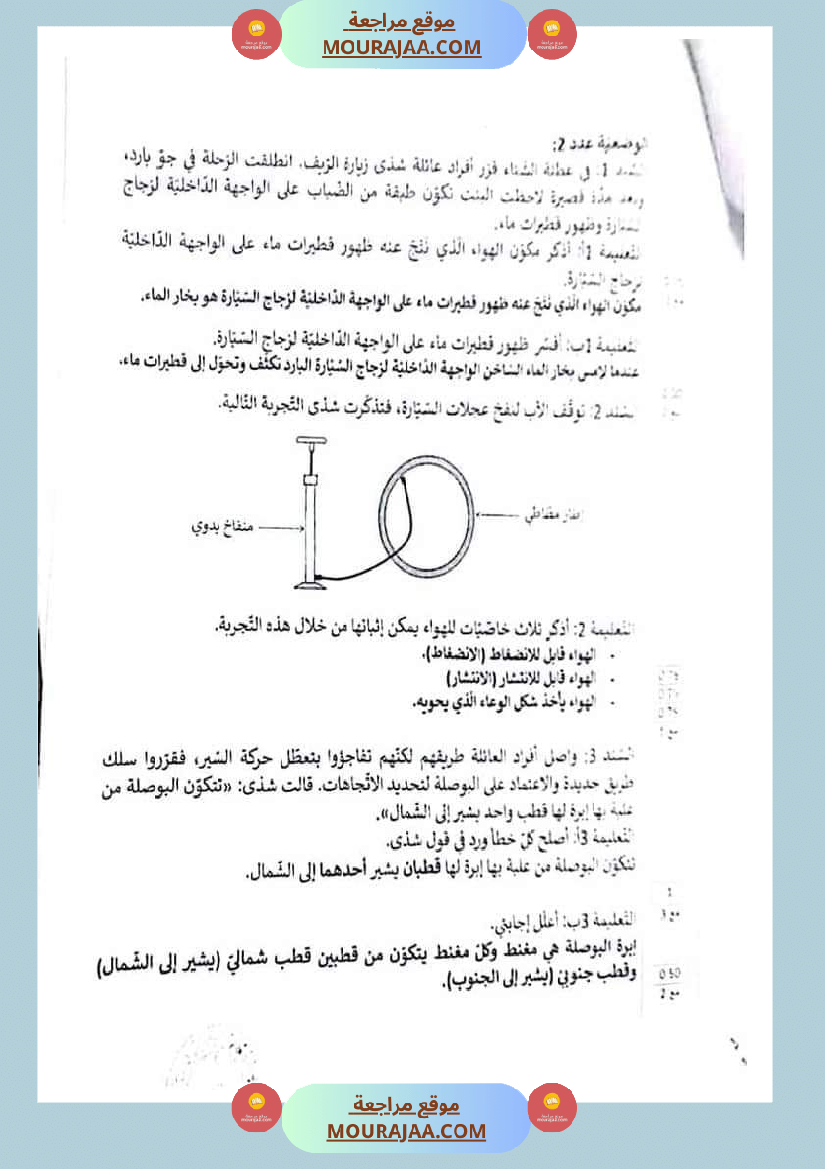 موقع مراجعة
MOURAJAA.COM
الوضعيّة عدد 2:
السّند 1: في عطلة الشّتاء قرّر أفراد عائلة شذى زيارة الرّيف. انطلقت الرّحلة في جوّ بارد،
وبعد مدّة قصيرة لاحظت البنت تكوّن طبقة من الضّباب على الواجهة الدّاخليّة لزجاج
السّيّارة وظهور قطيرات ماء.
التّعليمة 1أ: أذكر مكوّن الهواء الّذي نَتَجَ عنه ظهور قطيرات ماء على الواجهة الدّاخليّة
لزجاج السّيّارة.
مكوّن الهواء الّذي نَتَجَ عنه ظهور قطيرات ماء على الواجهة الداخليّة لزجاج السّيّارة هو بخار الماء.
التّعليمة 1ب: أفسّر ظهور قطيرات ماء على الواجهة الدّاخليّة لزجاج السّيّارة.
عندما لامس بخار الماء السّاخن الواجهة الدّاخليّة لزجاج السّيّارة البارد تكثّف وتحوّل إلى قطيرات ماء.
السّند 2: توقّف الأب لنفخ عجلات السّيّارة، فتذكّرت شذى التّجربة التّالية.
إطار مطّاطي
منفاخ يدوي
التّعليمة 2: أذكر ثلاث خاصّيّات للهواء يمكن إثباتها من خلال هذه التّجربة.
· الهواء قابل للانضغاط (الانضغاط).
· الهواء قابل للانتشار (الانتشار)
· الهواء يأخذ شكل الوعاء الّذي يحويه.
0.75
0.75
السّند 3: واصل أفراد العائلة طريقهم لكنّهم تفاجؤوا بتعطّل حركة السّير، فقرّروا سلك
طريق جديدة والاعتماد على البوصلة لتحديد الاتّجاهات. قالت شذى: «تتكوّن البوصلة من
علبة بها إبرة لها قطب واحد يشير إلى الشّمال».
التّعليمة 3أ: أصلح كلّ خطأ ورد في قول شذى.
تتكوّن البوصلة من علبة بها إبرة لها قطبان يشير أحدهما إلى الشّمال.
1
مع 3
التّعليمة 3ب: أعلّل إجابتي.
إبرة البوصلة هي مغنط وكلّ مغنط يتكوّن من قطبين قطب شماليّ (يشير إلى الشّمال)
وقطب جنوبيّ (يشير إلى الجنوب).
0.50
مع 2
موقع مراجعة
MOURAJAA.COM